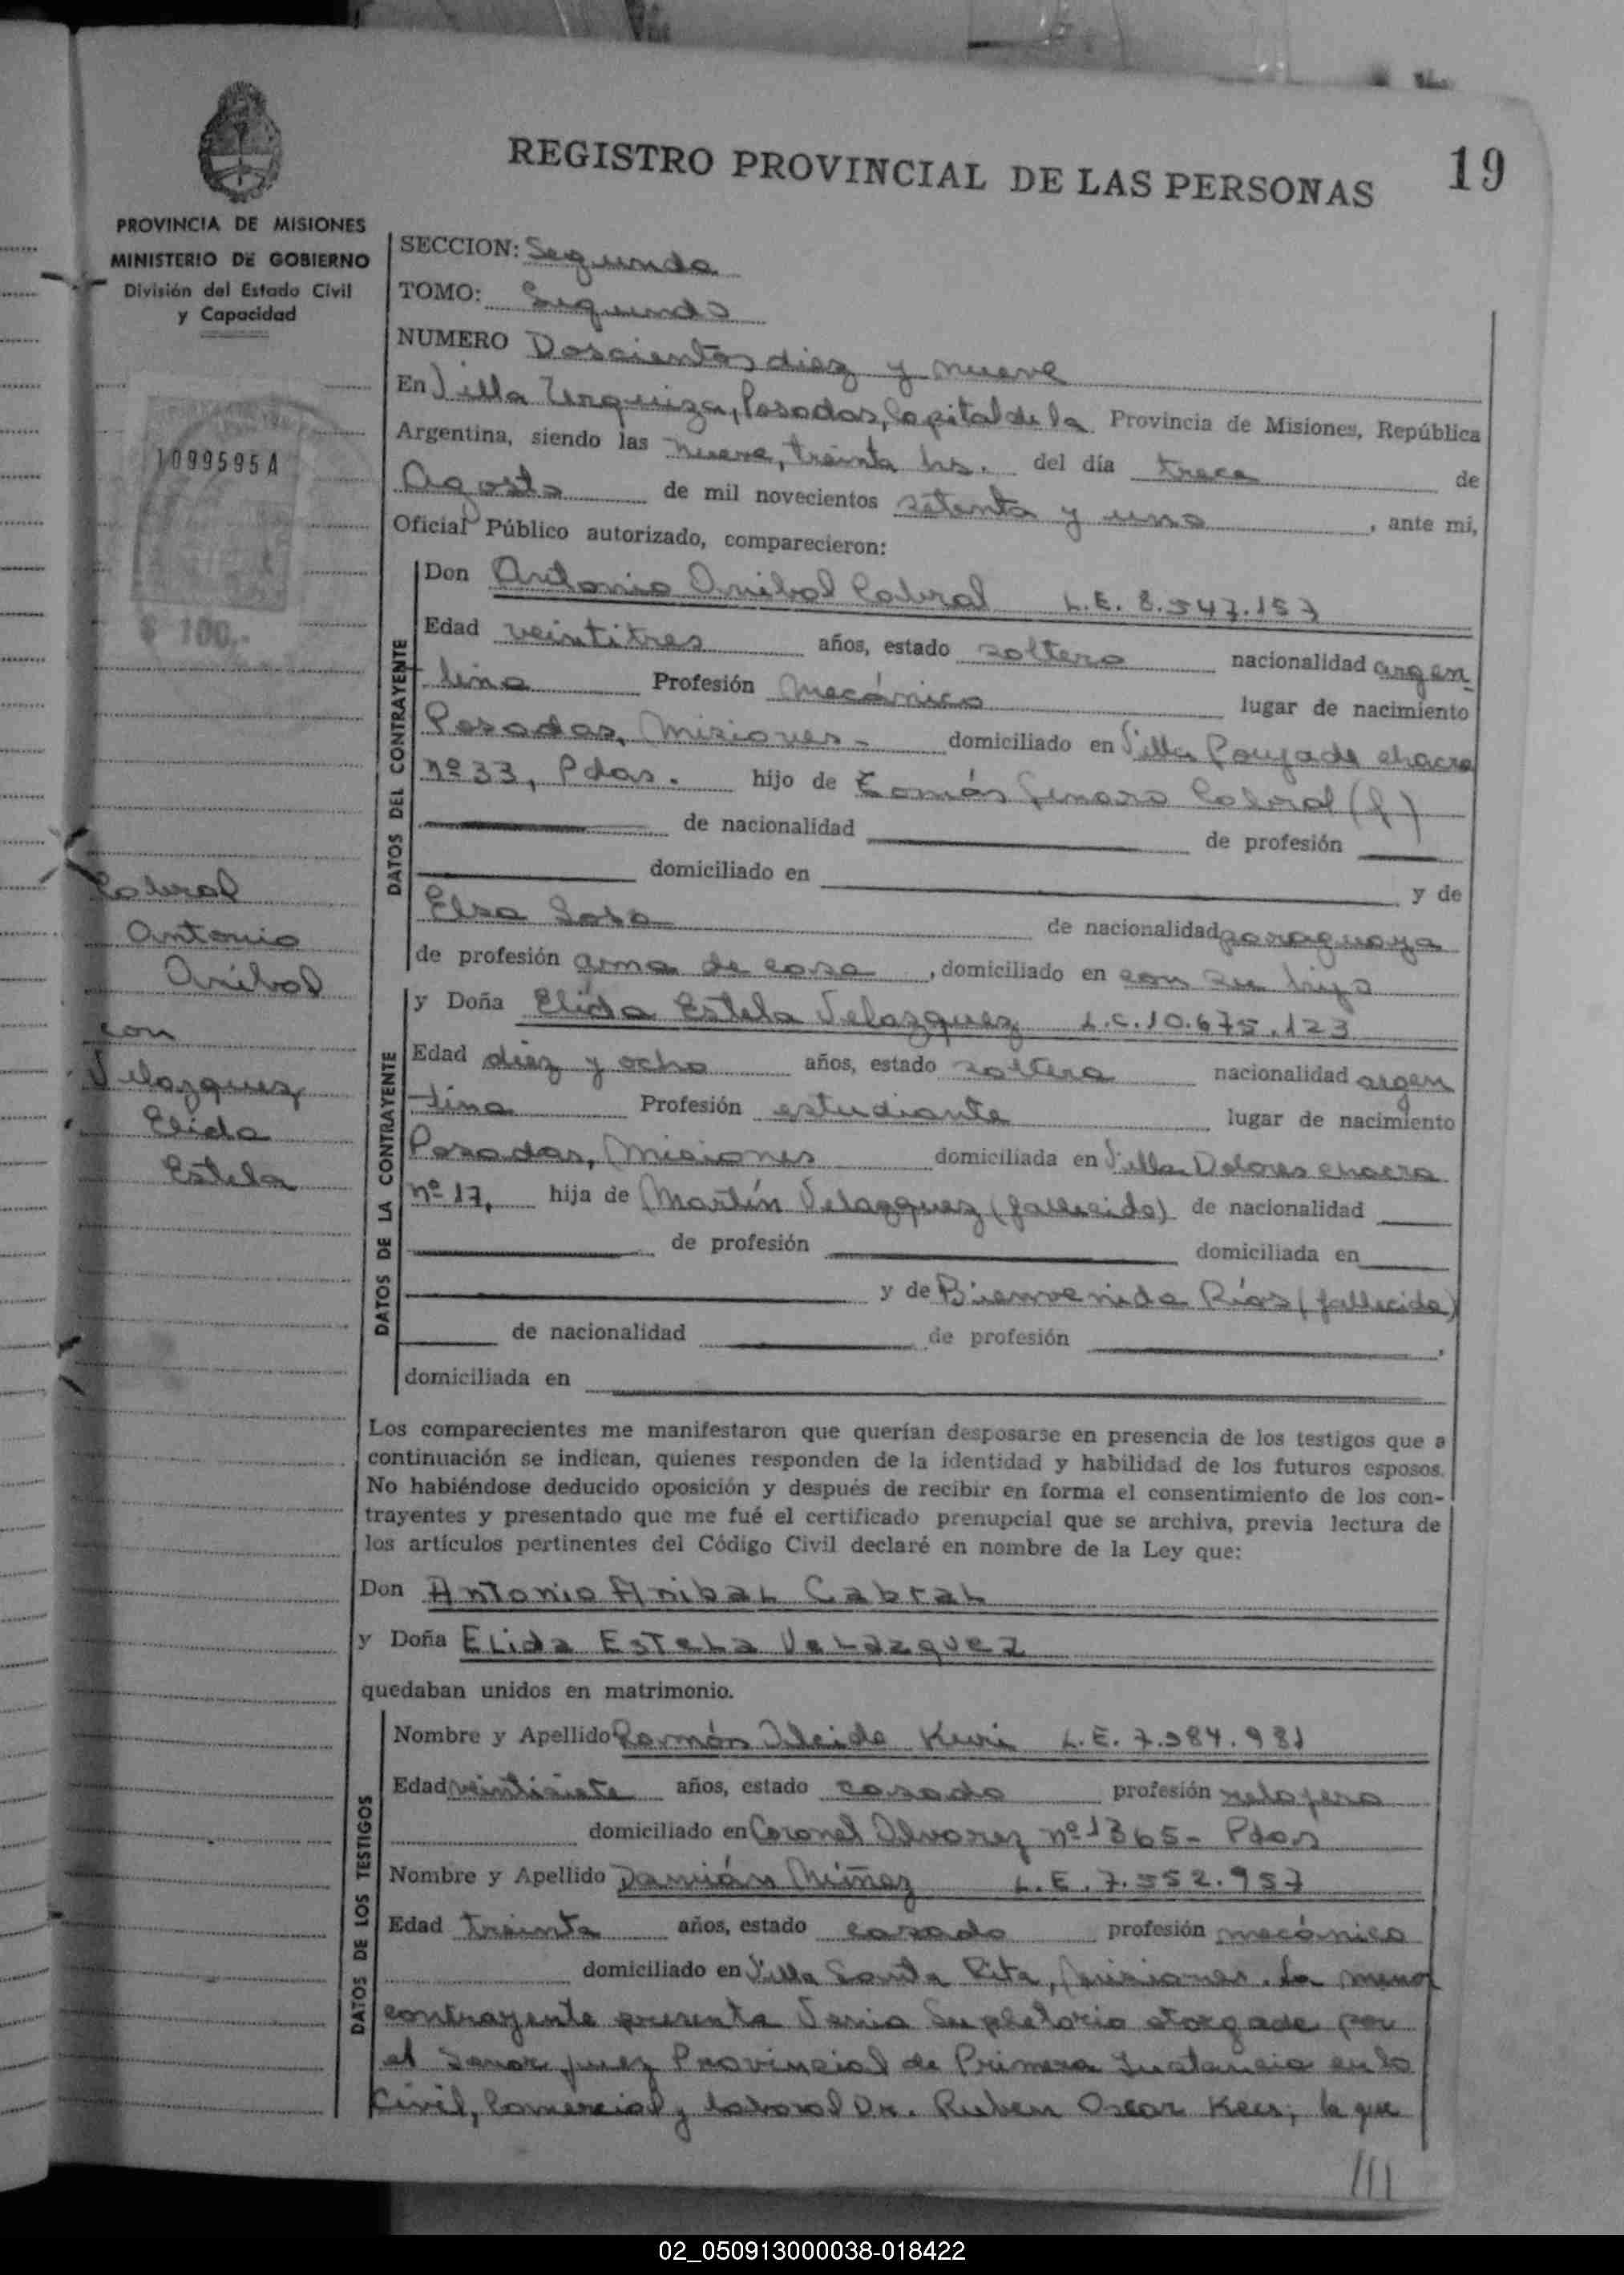 REGISTRO PROVINCIAL DE LAS PERSONAS 19
PROVINCIA DE MISIONES
MINISTERIO DE GOBIERNO
División del Estado Civil
y Capacidad
1099595A
$ 100.-
SECCION: Segunda
TOMO: Segundo
NUMERO Doscientos diez y nueve
En Villa Urquiza, Posadas, Capital de la Provincia de Misiones, República
Argentina, siendo las nueve, treinta hs. del día trece de
Agosto de mil novecientos setenta y uno, ante mi,
Oficial Público autorizado, comparecieron:
DATOS DEL CONTRAYENTE
Don Antonio Anibal Cabral L.E. 8.547.157
Edad veintitres años, estado soltero nacionalidad argen
tino Profesión Mecánico lugar de nacimiento
Posadas, Misiones- domiciliado en Villa Poujade chacra
nº 33, Pdas. hijo de Tomás Genaro Cabral (f)
de nacionalidad de profesión
domiciliado en y de
Elsa Sosa de nacionalidad paraguaya
de profesión ama de casa, domiciliado en con su hijo
Cabral
Antonio
Anibal
con
Velazquez
Elida
Estela
DATOS DE LA CONTRAYENTE
y Doña Elida Estela Velazquez L.C. 10.675.123
Edad diez y ocho años, estado soltera nacionalidad argen
tina Profesión estudiante lugar de nacimiento
Posadas, Misiones domiciliada en Villa Dolores chacra
nº 17, hija de Martín Velazquez (fallecido) de nacionalidad
de profesión domiciliada en
y de Bienvenida Ríos (fallecida)
de nacionalidad de profesión ,
domiciliada en
Los comparecientes me manifestaron que querían desposarse en presencia de los testigos que a
continuación se indican, quienes responden de la identidad y habilidad de los futuros esposos.
No habiéndose deducido oposición y después de recibir en forma el consentimiento de los con-
trayentes y presentado que me fué el certificado prenupcial que se archiva, previa lectura de
los artículos pertinentes del Código Civil declaré en nombre de la Ley que:
Don Antonio Anibal Cabral
y Doña Elida Estela Velazquez
quedaban unidos en matrimonio.
DATOS DE LOS TESTIGOS
Nombre y Apellido Ramón Alcides Kuri L.E. 7.584.981
Edad veintisiete años, estado casado profesión relojero
domiciliado en Coronel Alvarez nº 1365- Pdas
Nombre y Apellido Damián Núñez L.E. 7.552.957
Edad treinta años, estado casado profesión mecánico
domiciliado en Villa Santa Rita, Misiones. La menor
contrayente presenta Venia Supletoria otorgada por
el Senor Juez Provincial de Primera Instancia en lo
Civil, Comercial y Laboral Dr. Ruben Oscar Kees; la que
///
02_050913000038-018422